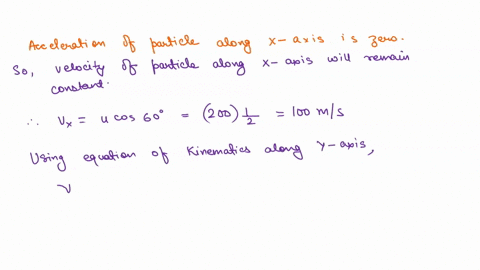 Acceleration of particle along x-axis is zero.
So, velocity of particle along x-axis will remain
constant.
∴ Vx = u cos 60° = (200) 1/2 = 100 m/s
Using equation of Kinematics along y-axis,
V